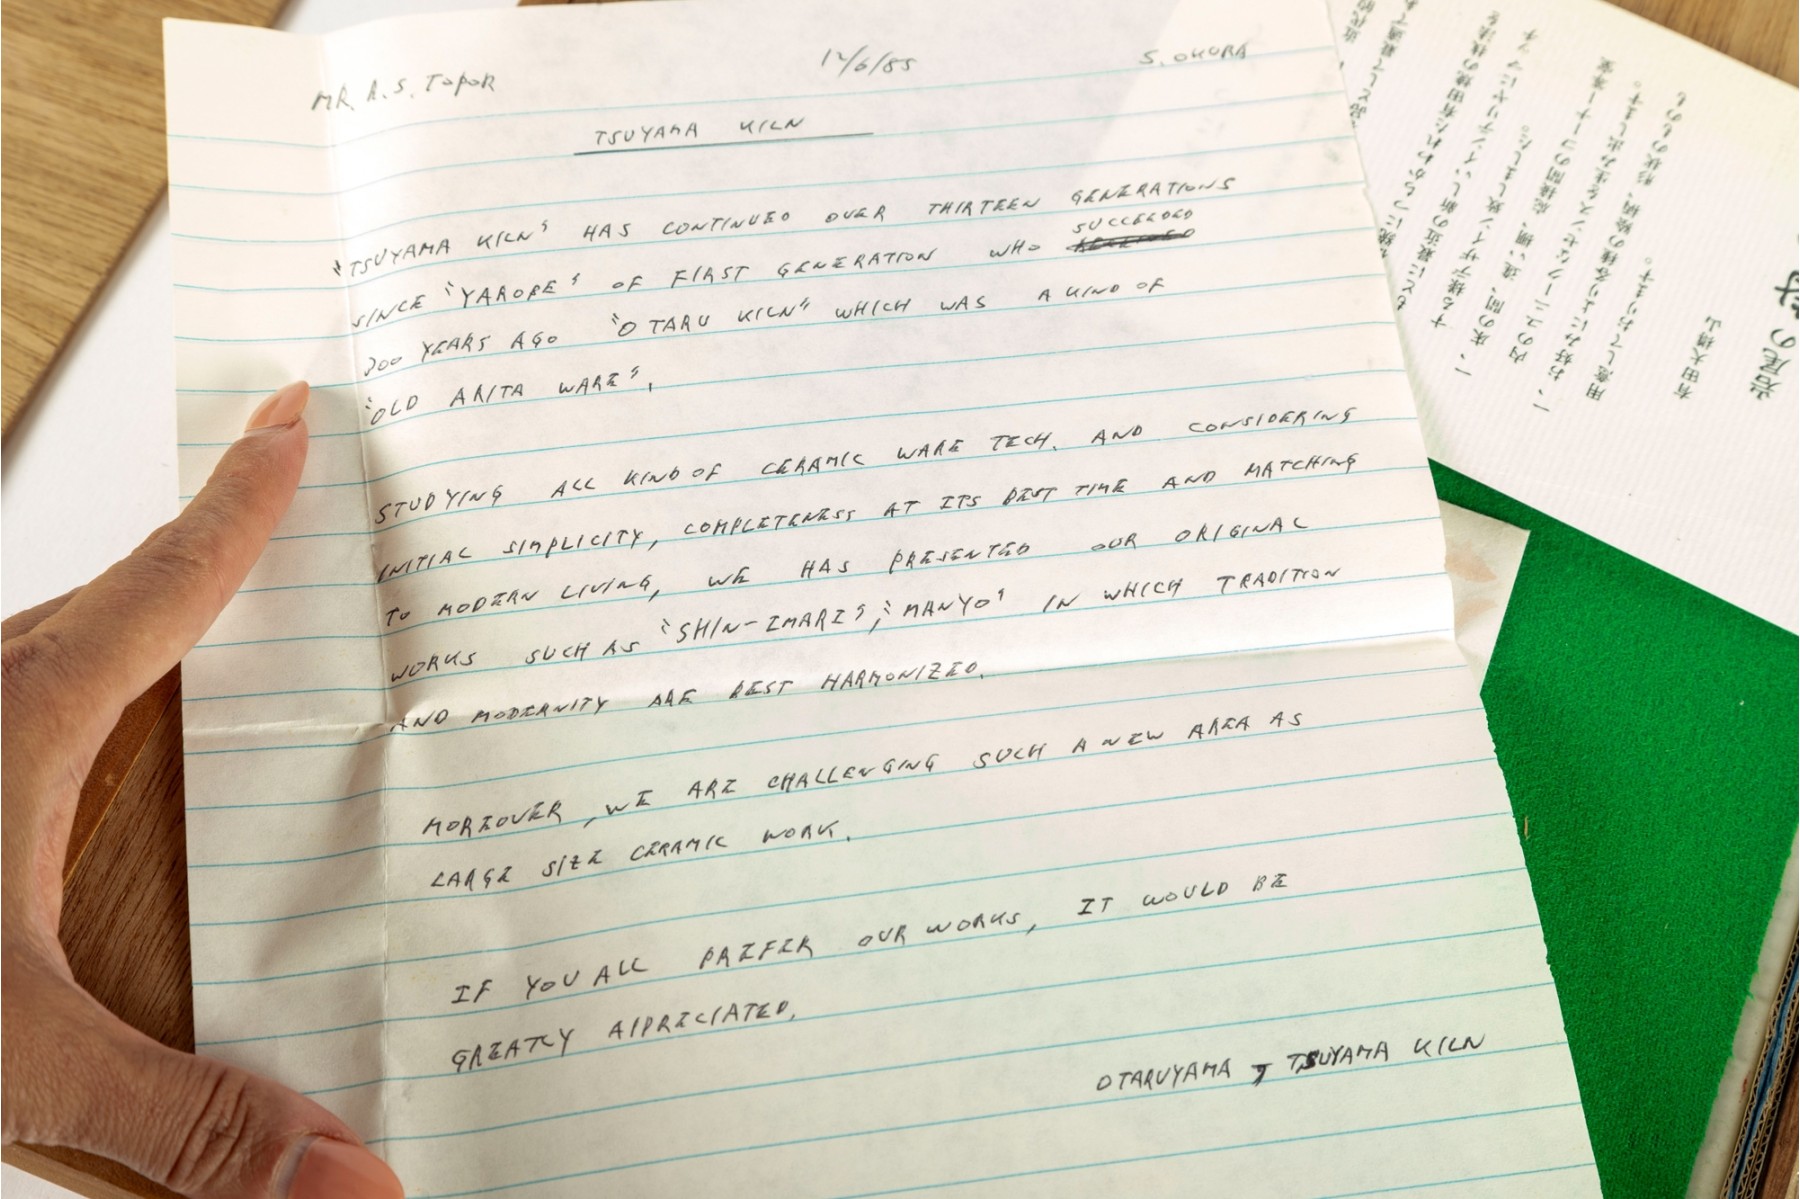 MR A.S. TOPOR
12/6/85
S. OKURA
TSUYAMA KILN
"TSUYAMA KILN" HAS CONTINUED OVER THIRTEEN GENERATIONS
SINCE "YAROBE" OF FIRST GENERATION WHO SUCCEEDED
300 YEARS AGO "O TARU KILN" WHICH WAS A KIND OF
"OLD ARITA WARE".
STUDYING ALL KIND OF CERAMIC WARE TECH. AND CONSIDERING
INITIAL SIMPLICITY, COMPLETENESS AT ITS BEST TIME AND MATCHING
TO MODERN LIVING, WE HAS PRESENTED OUR ORIGINAL
WORKS SUCH AS "SHIN-IMARI", "MANYO" IN WHICH TRADITION
AND MODERNITY ARE BEST HARMONIZED.
MOREOVER, WE ARE CHALLENGING SUCH A NEW AREA AS
LARGE SIZE CERAMIC WORK.
IF YOU ALL PREFER OUR WORKS, IT WOULD BE
GREATLY APPRECIATED.
OTARUYAMA, TSUYAMA KILN
する様デザイン致しました。
一、床の間、違い棚、応接間のコーナー等
一、お好みにより各種の絵柄、形状のものも
用意しております。
有田大樽山
岩尾の